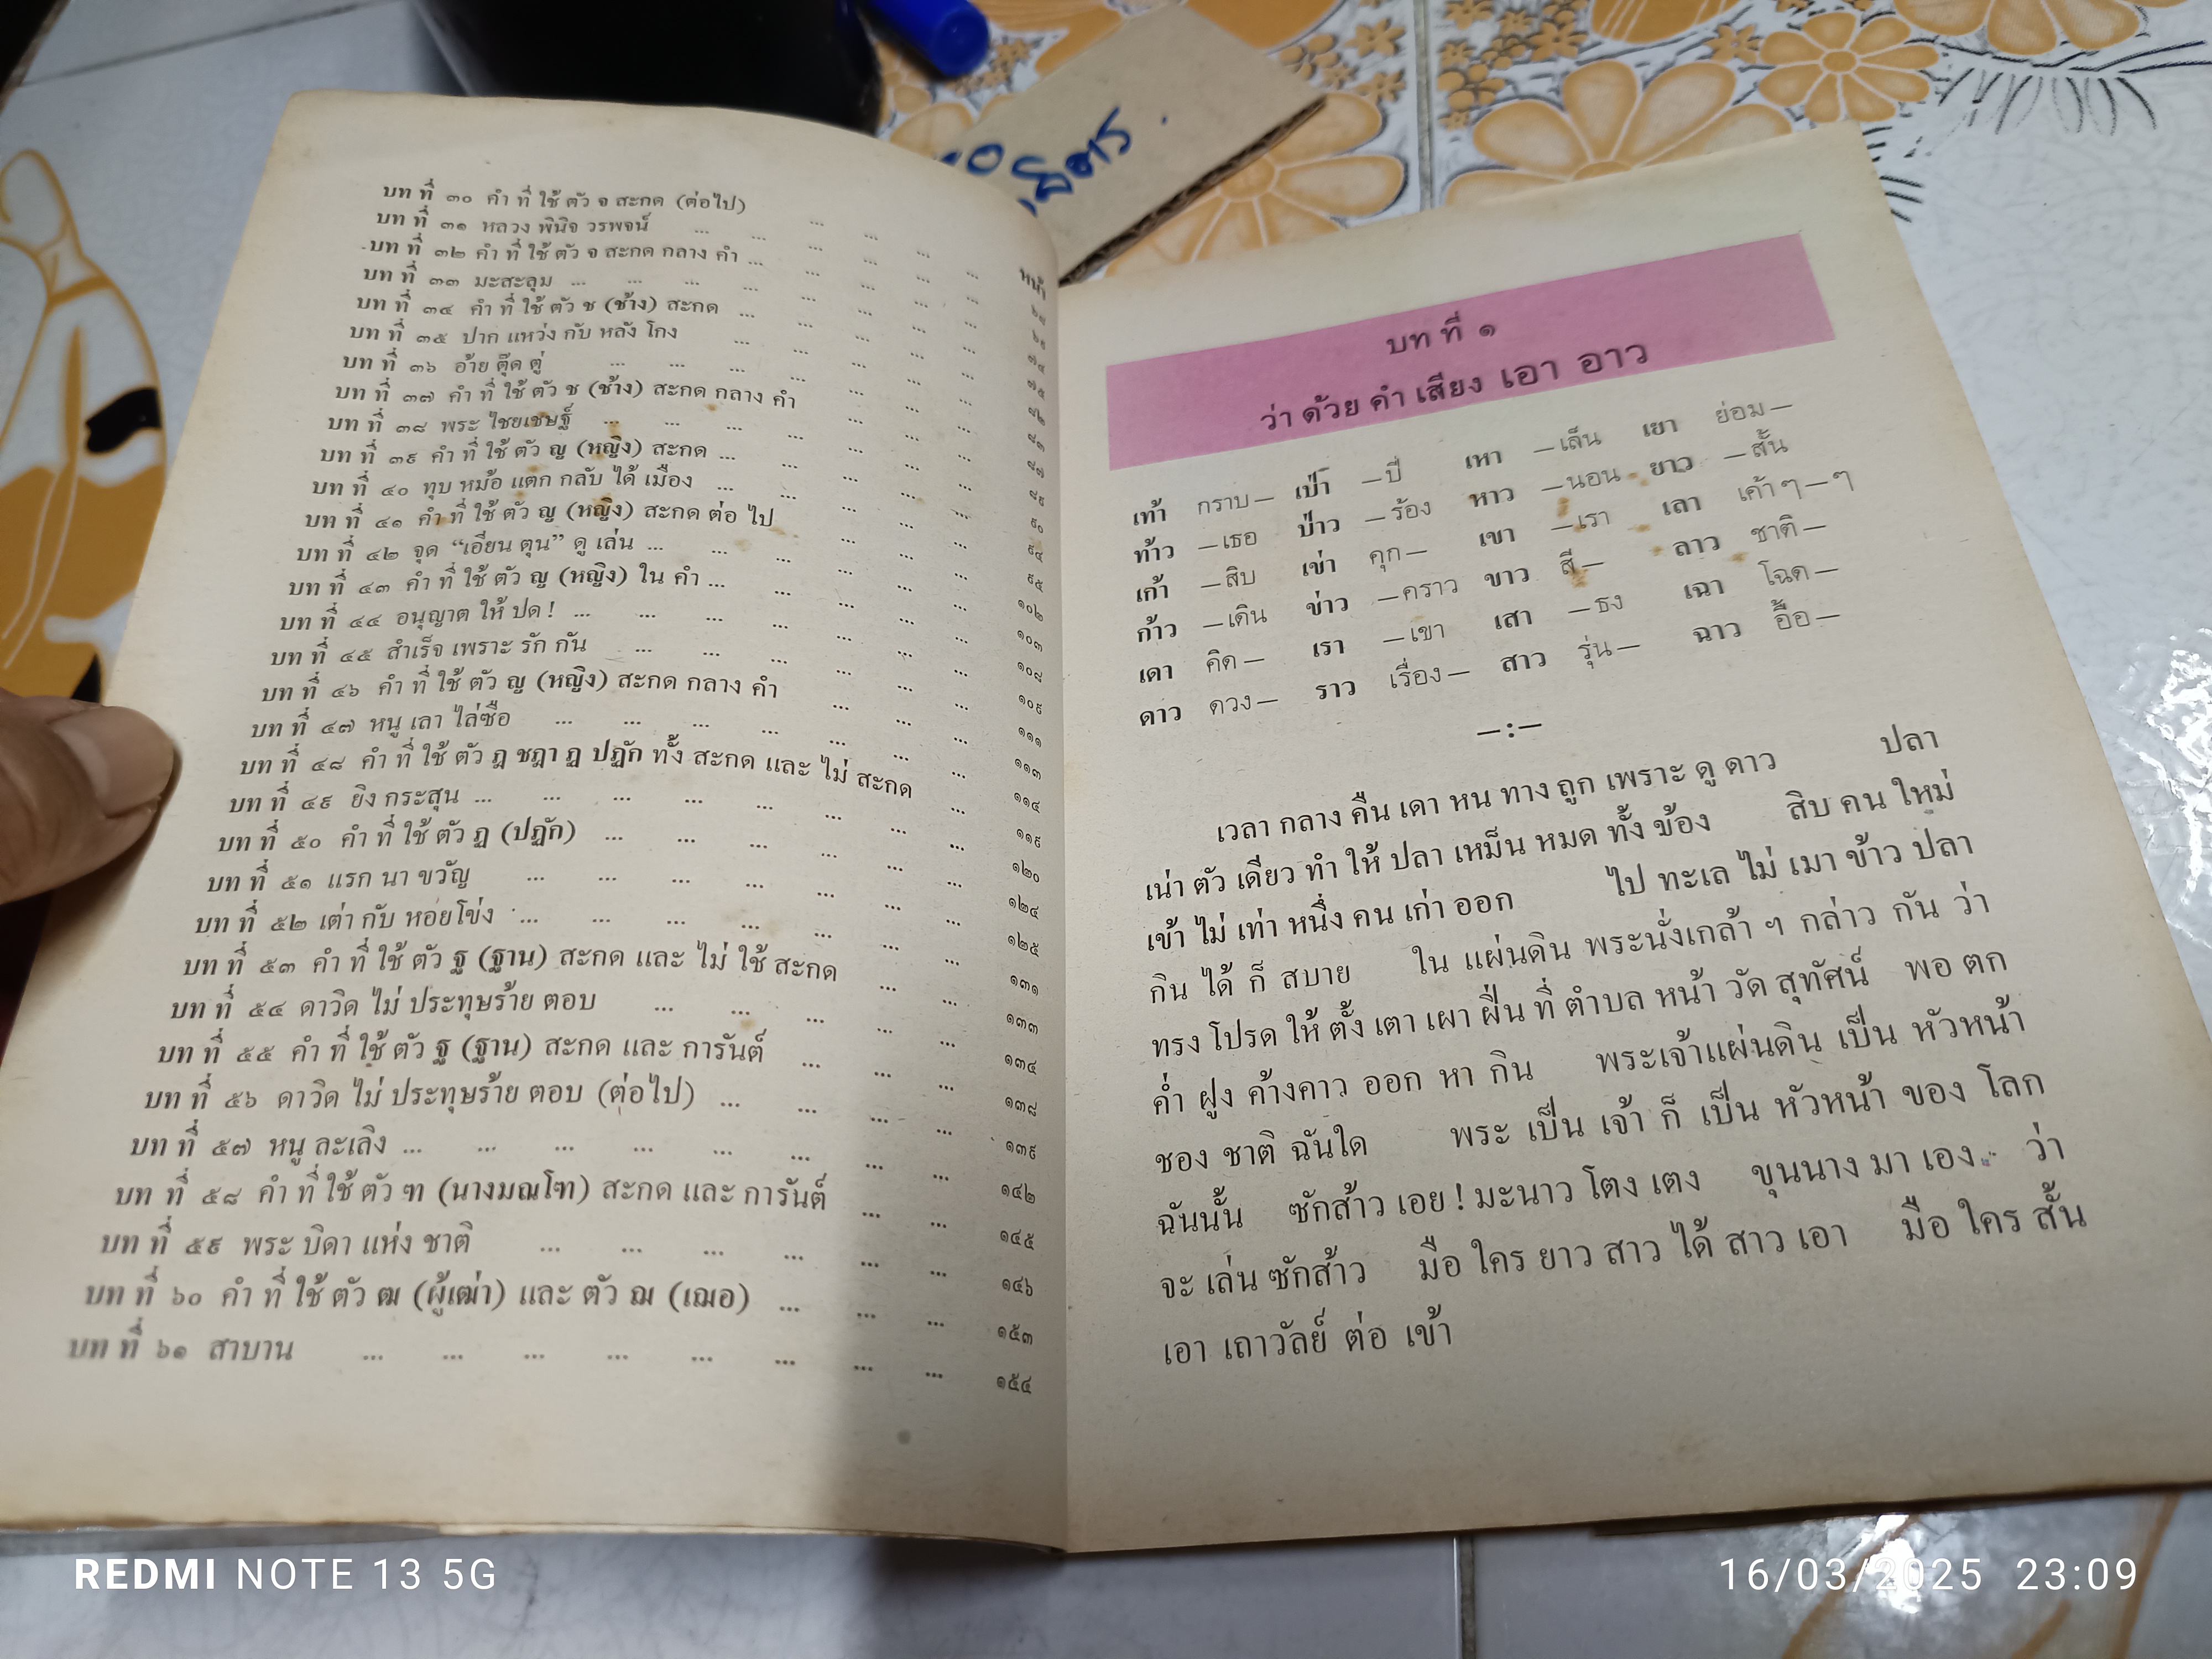 บท ที่ ๓๐ คำ ที่ ใช้ ตัว จ สะกด (ต่อไป) ... ... ... ...
บท ที่ ๓๑ หลวง พินิจ วรพจน์ ... ... ... ... ... ...
บท ที่ ๓๒ คำ ที่ ใช้ ตัว จ สะกด กลาง คำ ... ... ... ... ...
บท ที่ ๓๓ มะสะลุม ... ... ... ... ... ... ...
บท ที่ ๓๔ คำ ที่ ใช้ ตัว ช (ช้าง) สะกด ... ... ... ...
บท ที่ ๓๕ ปาก แหว่ง กับ หลัง โกง ... ... ... ... ...
บท ที่ ๓๖ อ้าย ตุ๊ด ตู่ ... ... ... ... ... ... ...
บท ที่ ๓๗ คำ ที่ ใช้ ตัว ช (ช้าง) สะกด กลาง คำ ... ... ...
บท ที่ ๓๘ พระ ไชยเชษฐ์ ... ... ... ... ... ... ...
บท ที่ ๓๙ คำ ที่ ใช้ ตัว ญ (หญิง) สะกด ... ... ... ... ...
บท ที่ ๔๐ ทุบ หม้อ แตก กลับ ได้ เมือง ... ... ... ... ...
บท ที่ ๔๑ คำ ที่ ใช้ ตัว ญ (หญิง) สะกด ต่อ ไป ... ... ...
บท ที่ ๔๒ จุด “เอียน ตุน” ดู เล่น ... ... ... ... ... ...
บท ที่ ๔๓ คำ ที่ ใช้ ตัว ญ (หญิง) ใน คำ ... ... ... ... ... ๑๐๒
บท ที่ ๔๔ อนุญาต ให้ ปด ! ... ... ... ... ... ... ... ๑๐๓
บท ที่ ๔๕ สำเร็จ เพราะ รัก กัน ... ... ... ... ... ... ๑๐๘
บท ที่ ๔๖ คำ ที่ ใช้ ตัว ญ (หญิง) สะกด กลาง คำ ... ... ... ๑๐๙
บท ที่ ๔๗ หนู เลา ไล่ซื่อ ... ... ... ... ... ... ... ๑๑๑
บท ที่ ๔๘ คำ ที่ ใช้ ตัว ฎ ชฎา ฏ ปฏัก ทั้ง สะกด และ ไม่ สะกด ... ๑๑๓
บท ที่ ๔๙ ยิง กระสุน ... ... ... ... ... ... ... ... ๑๑๔
บท ที่ ๕๐ คำ ที่ ใช้ ตัว ฏ (ปฏัก) ... ... ... ... ... ... ๑๑๙
บท ที่ ๕๑ แรก นา ขวัญ ... ... ... ... ... ... ... ๑๒๐
บท ที่ ๕๒ เต่า กับ หอยโข่ง ... ... ... ... ... ... ... ๑๒๔
บท ที่ ๕๓ คำ ที่ ใช้ ตัว ฐ (ฐาน) สะกด และ ไม่ ใช้ สะกด ... ... ๑๒๕
บท ที่ ๕๔ ดาวิด ไม่ ประทุษร้าย ตอบ ... ... ... ... ... ๑๓๑
บท ที่ ๕๕ คำ ที่ ใช้ ตัว ฐ (ฐาน) สะกด และ การันต์ ... ... ... ๑๓๓
บท ที่ ๕๖ ดาวิด ไม่ ประทุษร้าย ตอบ (ต่อไป) ... ... ... ... ๑๓๔
บท ที่ ๕๗ หนู ละเลิง ... ... ... ... ... ... ... ... ๑๓๘
บท ที่ ๕๘ คำ ที่ ใช้ ตัว ฑ (นางมณโฑ) สะกด และ การันต์ ... ... ๑๓๙
บท ที่ ๕๙ พระ บิดา แห่ง ชาติ ... ... ... ... ... ... ๑๔๒
บท ที่ ๖๐ คำ ที่ ใช้ ตัว ฒ (ผู้เฒ่า) และ ตัว ฌ (เฌอ) ... ... ... ๑๔๕
บท ที่ ๖๑ สาบาน ... ... ... ... ... ... ... ... ๑๔๖
๑๕๓
๑๕๔
หน้า
บท ที่ ๑
ว่า ด้วย คำ เสียง เอา อาว
เท้า กราบ— เป่า —ปี่ เหา —เล็น เยา ย่อม—
ท้าว —เธอ ป่าว —ร้อง หาว —นอน ยาว —สั้น
เก้า —สิบ เข่า คุก— เขา —เรา เลา เค้าๆ—ๆ
ก้าว —เดิน ข่าว —คราว ขาว สี— ลาว ชาติ—
เดา คิด— เรา —เขา เสา —ธง เฉา โฉด—
ดาว ดวง— ราว เรื่อง— สาว รุ่น— ฉาว อื้อ—
—:—
เวลา กลาง คืน เดา หน ทาง ถูก เพราะ ดู ดาว ปลา
เน่า ตัว เดียว ทำ ให้ ปลา เหม็น หมด ทั้ง ข้อง สิบ คน ใหม่
เข้า ไม่ เท่า หนึ่ง คน เก่า ออก ไป ทะเล ไม่ เมา ข้าว ปลา
กิน ได้ ก็ สบาย ใน แผ่นดิน พระนั่งเกล้า ๆ กล่าว กัน ว่า
ทรง โปรด ให้ ตั้ง เตา เผา ฝิ่น ที่ ตำบล หน้า วัด สุทัศน์ พอ ตก
ค่ำ ฝูง ค้างคาว ออก หา กิน พระเจ้าแผ่นดิน เป็น หัวหน้า
ของ ชาติ ฉันใด พระ เป็น เจ้า ก็ เป็น หัวหน้า ของ โลก
ฉันนั้น ซักส้าว เอย ! มะนาว โตง เตง ขุนนาง มา เอง ว่า
จะ เล่น ซักส้าว มือ ใคร ยาว สาว ได้ สาว เอา มือ ใคร สั้น
เอา เถาวัลย์ ต่อ เข้า
REDMI NOTE 13 5G
16/03/2025 23:09